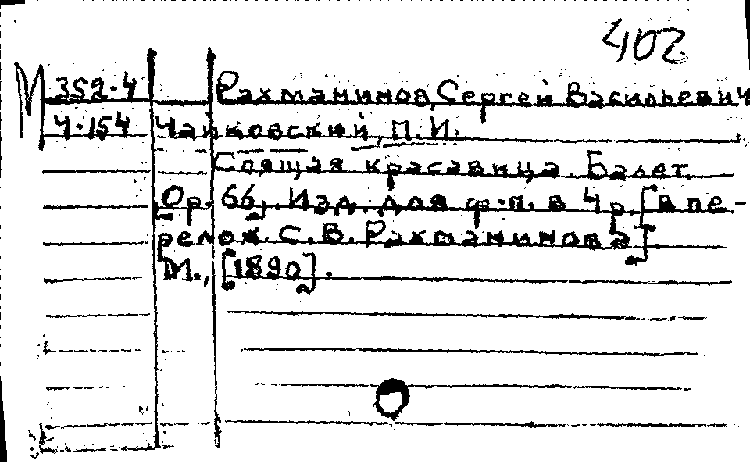 402
М 352-4 Рахманинов, Сергей Васильевич
Ч-154 Чайковский, П.И.
Спящая красавица. Балет.
Ор. 66. Изд. для ф-п. в 4 р. [в пе-
релож. С. В. Рахманинова]
М., [1890].